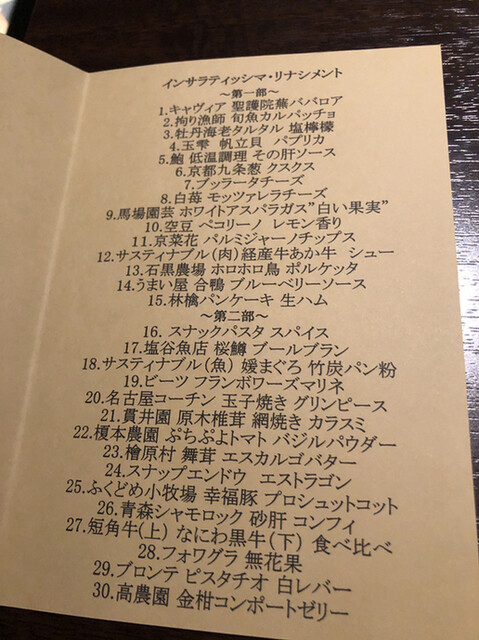 インサラティッシマ・リナシメント
～第一部～
1.キャヴィア 聖護院蕪ババロア
2.拘り漁師 旬魚カルパッチョ
3.牡丹海老タルタル 塩檸檬
4.玉雫 帆立貝 パプリカ
5.鮑 低温調理 その肝ソース
6.京都九条葱 クスクス
7.ブッラータチーズ
8.白苺 モッツァレラチーズ
9.馬場園芸 ホワイトアスパラガス”白い果実”
10.空豆 ペコリーノ レモン香り
11.京菜花 パルミジャーノチップス
12.サスティナブル(肉)経産牛あか牛 シュー
13.石黒農場 ホロホロ鳥 ポルケッタ
14.うまい屋 合鴨 ブルーベリーソース
15.林檎パンケーキ 生ハム
～第二部～
16. スナックパスタ スパイス
17.塩谷魚店 桜鱒 ブールブラン
18.サスティナブル(魚) 媛まぐろ 竹炭パン粉
19.ビーツ フランボワーズマリネ
20.名古屋コーチン 玉子焼き グリンピース
21.貫井園 原木椎茸 網焼き カラスミ
22.榎本農園 ぷちぷよトマト バジルパウダー
23.檜原村 舞茸 エスカルゴバター
24.スナップエンドウ エストラゴン
25.ふくどめ小牧場 幸福豚 プロシュットコット
26.青森シャモロック 砂肝 コンフィ
27.短角牛(上) なにわ黒牛(下) 食べ比べ
28.フォワグラ 無花果
29.ブロンテ ピスタチオ 白レバー
30.高農園 金柑コンポートゼリー